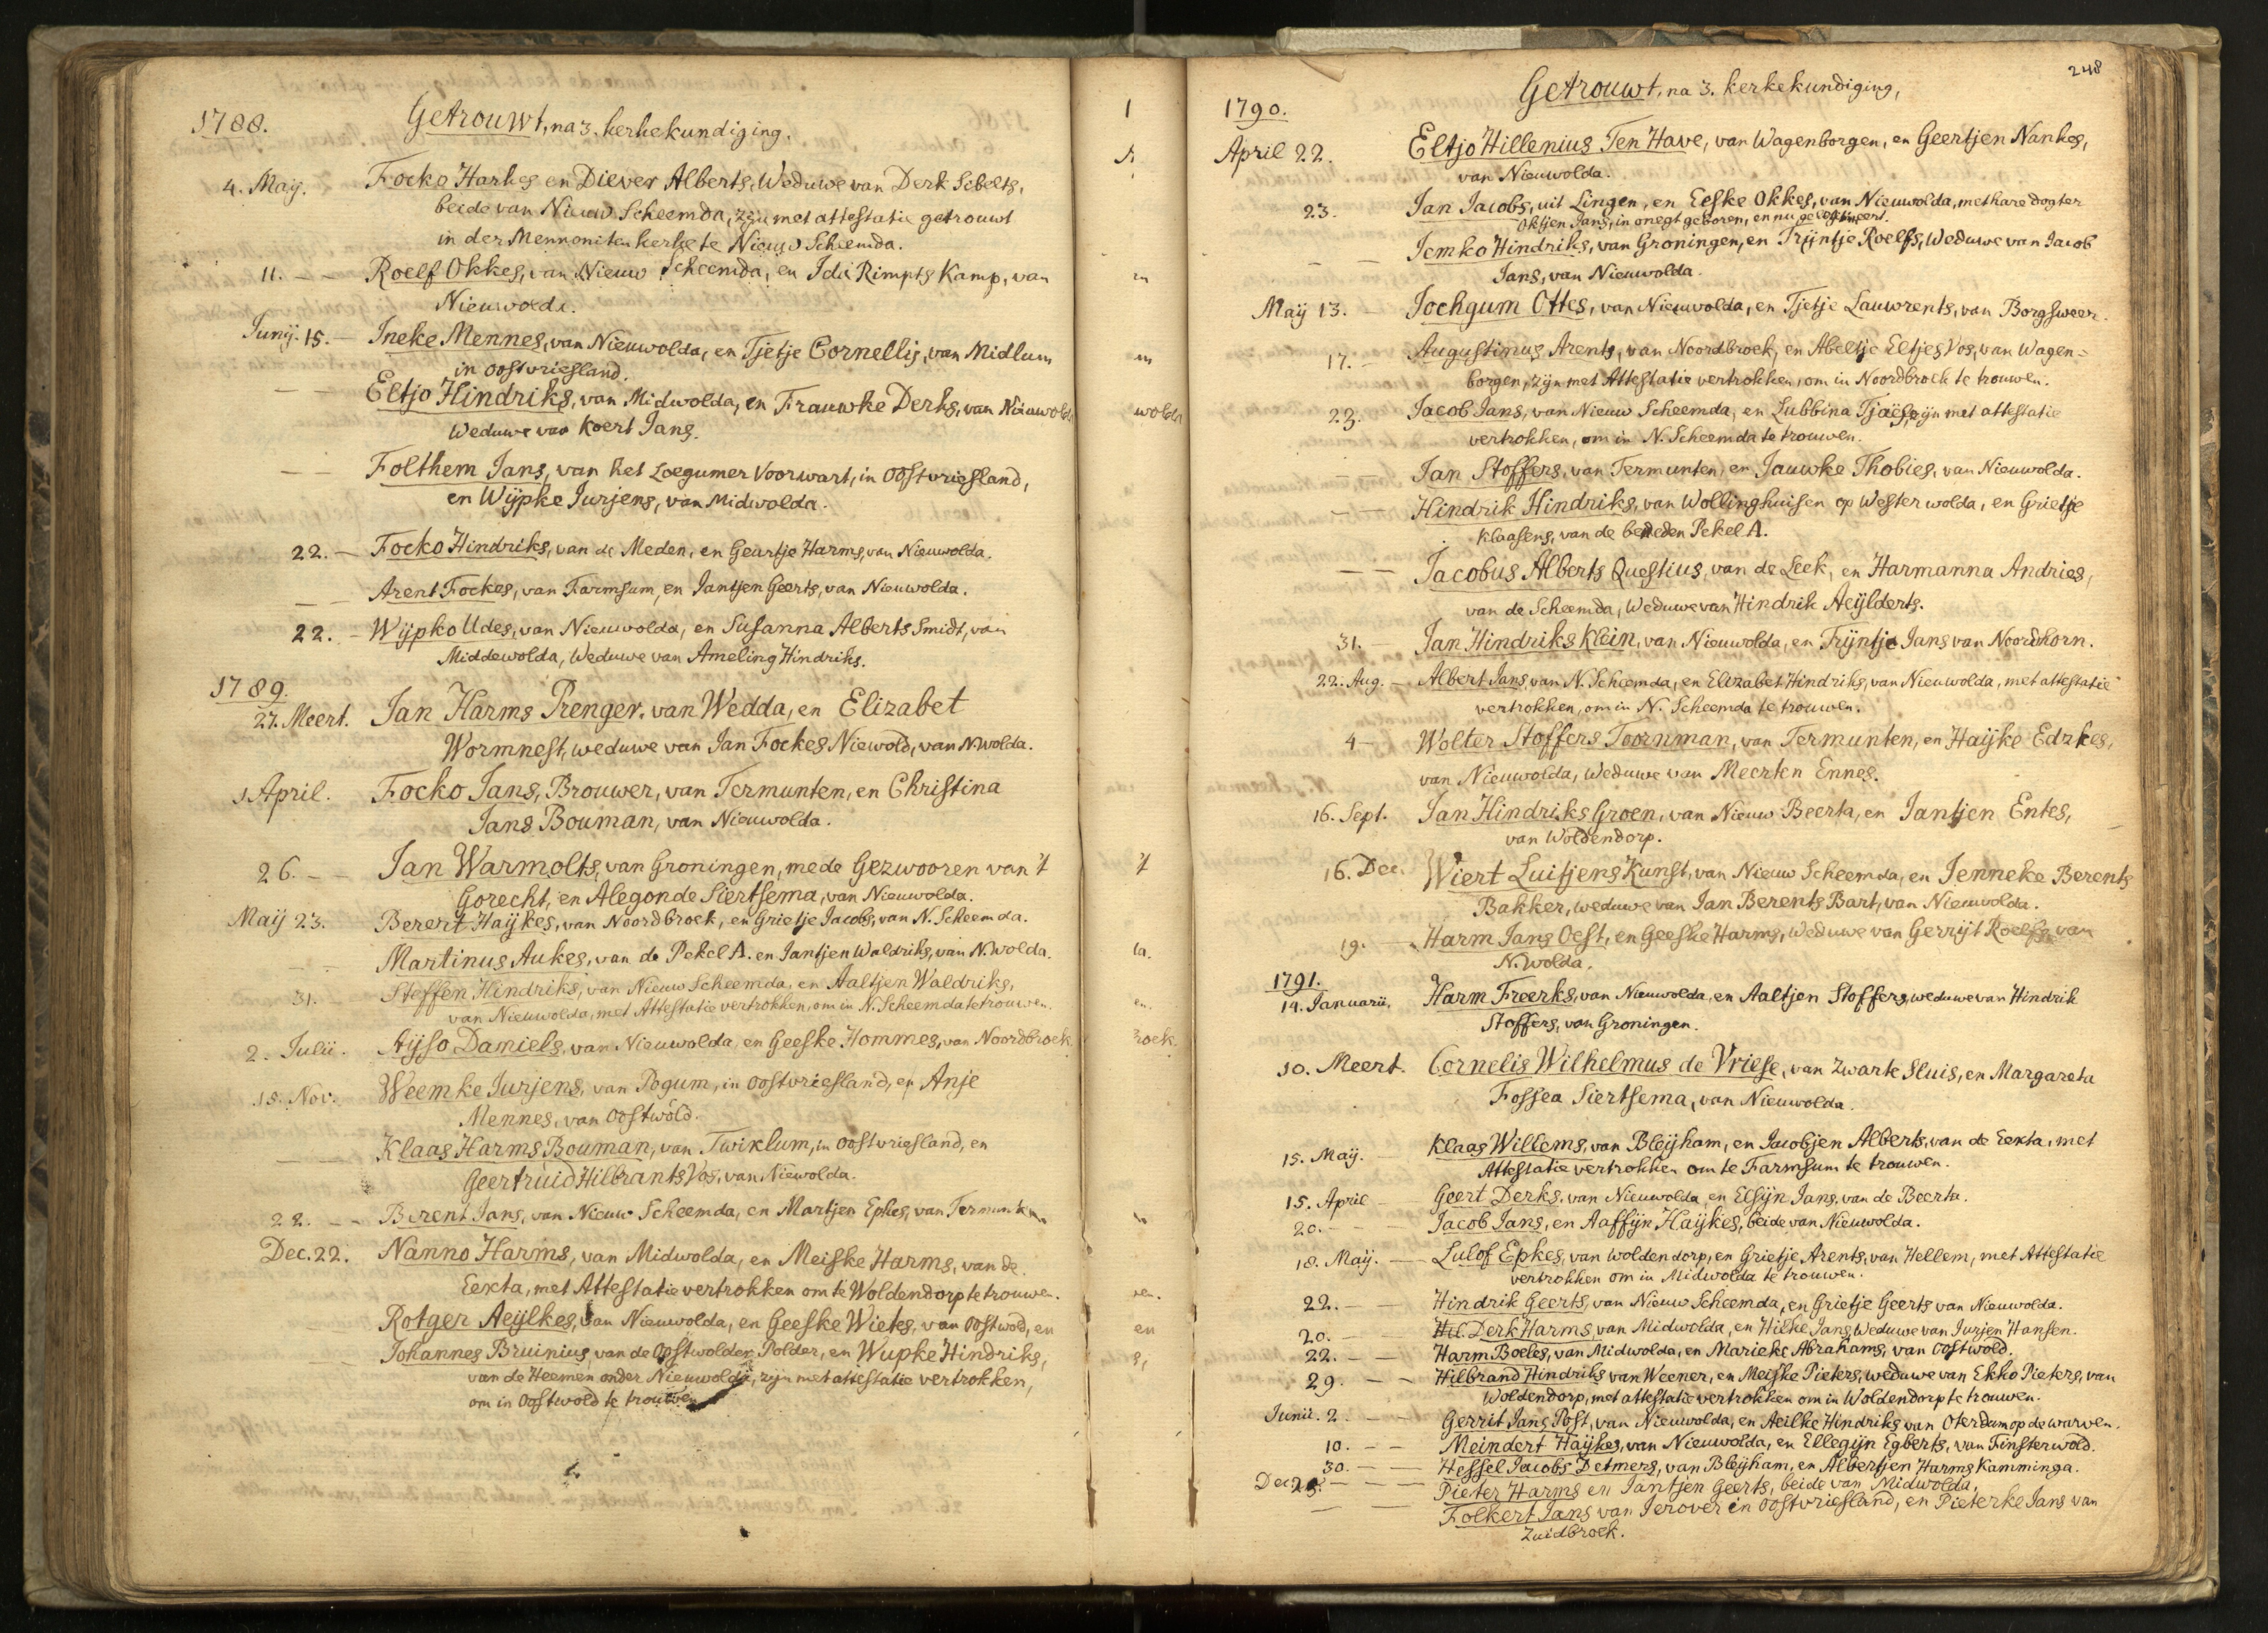 1788. Getrouwt, na 3. kerkekundiging.
4. Maij. Focko Harkes en Diever Alberts, Weduwe van Derk Sibelts,
beide van Nieuw Scheemda, zijn met attestatie getrouwt
in der Mennoniten kerke te Nieuw Scheemda.
11. — — Roelf Okkes, van Nieuw Scheemda, en Ida Rimpts Kamp, van
Nieuwolda.
Junij. 15. — Ineke Mennes, van Nieuwolda, en Tjetje Cornellis, van Midlum
in oostvriesland.
— — Eltjo Hindriks, van Midwolda, en Frauwke Derks, van Nieuwolda
Weduwe van Koert Jans.
— — Folthem Jans, van het Loegumer Voorwart, in Oostvriesland,
en Wijpke Jurjens, van Midwolda.
22. — Focko Hindriks, van de Meden, en Geurtje Harms, van Nieuwolda.
— — Arent Fockes, van Farmsum, en Jantjen Geerts, van Nieuwolda.
22. — Wijpko Udes, van Nieuwolda, en Susanna Alberts Smidt, van
Middewolda, Weduwe van Ameling Hindriks.
1789.
27. Meert. Jan Harms Prenger, van Wedda, en Elizabet
Wormnest, weduwe van Jan Fockes Niewold, van N.wolda.
1 April. Focko Jans, Brouwer, van Termunten, en Christina
Jans Bouman, van Nieuwolda.
26. — — Jan Warmolts, van Groningen, mede Gezwooren van 't
Gorecht, en Alegonde Siertsema, van Nieuwolda.
Maij 23. Berert Haijkes, van Noordbroek, en Grietje Jacobs, van N. Scheemda.
— — Martinus Aukes, van de Pekel A. en Jantjen Waldriks, van N.wolda.
31. — Steffen Hindriks, van Nieuw Scheemda, en Aaltjen Waldriks,
van Nieuwolda, met Attestatie vertrokken, om in N. Scheemda te trouwen.
2. Julii. Aijso Daniels, van Nieuwolda, en Geeske Hommes, van Noordbroek.
15. Nov. Weemke Jurjens, van Pogum, in oostvriesland, en Anje
Mennes, van oostwold.
— — Klaas Harms Bouman, van Twiklum, in oostvriesland, en
Geertruid Hilbrants Vos, van Niewolda.
22. — — Berent Jans, van Nieuw Scheemda, en Martjen Epkes, van Termunten
Dec. 22. Nanno Harms, van Midwolda, en Meiske Harms, van de
Eexta, met Attestatie vertrokken om te Woldendorp te trouwen.
Rotger Aeijlkes, van Nieuwolda, en Geeske Wietes, van oostwold, en
Johannes Bruinius, van de Oostwolder Polder, en Wupke Hindriks,
van de Heemen onder Nieuwolda, zijn met attestatie vertrokken,
om in Oostwold te trouwen
248
1790. Getrouwt, na 3. kerkekundiging,
April 22. Eltjo Hillenius Ten Have, van Wagenborgen, en Geertjen Nankes,
van Nieuwolda.
23. Jan Jacobs, uit Lingen, en Eeske Okkes, van Nieuwolda, met hare dogter
Oktjen Jans, in onegt geboren, en nu
— — Jemko Hindriks, van Groningen, en Trijntje Roelfs, Weduwe van Jacob
Jans, van Nieuwolda.
Maij 13. — Jochgum Ottes, van Nieuwolda, en Tjetje Lauwrents, van Borgsweer.
17. — Augustinus Arents, van Noordbroek, en Abeltje Eltjes Vos, van Wagen=
borgen, zijn met Attestatie vertrokken, om in Noordbroek te trouwen.
23. Jacob Jans, van Nieuw Scheemda, en Lubbina zijn met attestatie
vertrokken, om in N. Scheemda te trouwen.
— Jan Stoffers, van Termunten, en Jauwke Thobies, van Nieuwolda.
— — Hindrik Hindriks, van Wollinghuisen op Westerwolda, en Grietje
Klaasens, van de beneden Pekel A.
— — Jacobus Alberts Questius, van de Leek, en Harmanna Andries,
van de Scheemda, Weduwe van Hindrik Aeijlderts.
31. — Jan Hindriks Klein, van Nieuwolda, en Trijntje Jans van Noordhorn.
22. Aug. — Albert Jans, van N. Scheemda, en Elizabet Hindriks, van Nieuwolda, met attestatie
vertrokken, om in N. Scheemda te trouwen.
4 — Wolter Stoffers Toornman, van Termunten, en Haijke Edzkes,
van Nieuwolda, Weduwe van Meerten Ennes.
16. Sept. Jan Hindriks Groen, van Nieuw Beerta, en Jantjen Entes,
van Woldendorp.
16. Dec. Wiert Luitjens Kunst, van Nieuw Scheemda, en Jenneke Berents
Bakker, weduwe van Jan Berents Bart, van Nieuwolda.
19. — Harm Jans Oest, en Geeske Harms, Weduwe van Gerrijt Roelfs, van
N.wolda.
1791.
14. Januarii. Harm Freerks, van Nieuwolda, en Aaltjen Stoffers, weduwe van Hindrik
Stoffers, van Groningen.
10. Meert. Cornelis Wilhelmus de Vriese, van Zwarte Sluis, en Margareta
Fossea Siertsema, van Nieuwolda.
15. Maij. — Klaas Willems, van Bleijham, en Jacobjen Alberts, van de Eexta, met
Attestatie vertrokken om te Farmsum te trouwen.
15. April — Geert Derks, van Nieuwolda en Elsijn Jans, van de Beerta.
20. — — Jacob Jans, en Aaffijn Haijkes, beide van Nieuwolda.
18. Maij. — Lulof Epkes, van woldendorp, en Grietje Arents, van Hellem, met Attestatie
vertrokken om in Midwolda te trouwen.
22. — — Hindrik Geerts, van Nieuw Scheemda, en Grietje Geerts van Nieuwolda.
20. — — Derk Harms, van Midwolda, en Hilke Jans, Weduwe van Jurjen Hansen.
22. — — Harm Boeles, van Midwolda, en Marieke Abrahams, van oostwold.
29. — — Hilbrand Hindriks van Weener, en Meiske Pieters, weduwe van Ekko Pieters, van
Woldendorp, met attestatie vertrokken om in Woldendorp te trouwen.
Junii. 2. — — Gerrit Jans Post, van Nieuwolda, en Aeilke Hindriks van Oterdum op de warven.
10. — — Meindert Haijkes, van Nieuwolda, en Ellegijn Egberts, van Finsterwold.
30. — — Hessel Jacobs Detmers, van Bleijham, en Albertjen Harms Kamminga.
Dec — — Pieter Harms en Jantjen Geerts, beide van Midwolda.
— — Folkert Jans van Jerover in oostvriesland, en Pieterke Jans van
Zuidbroek.